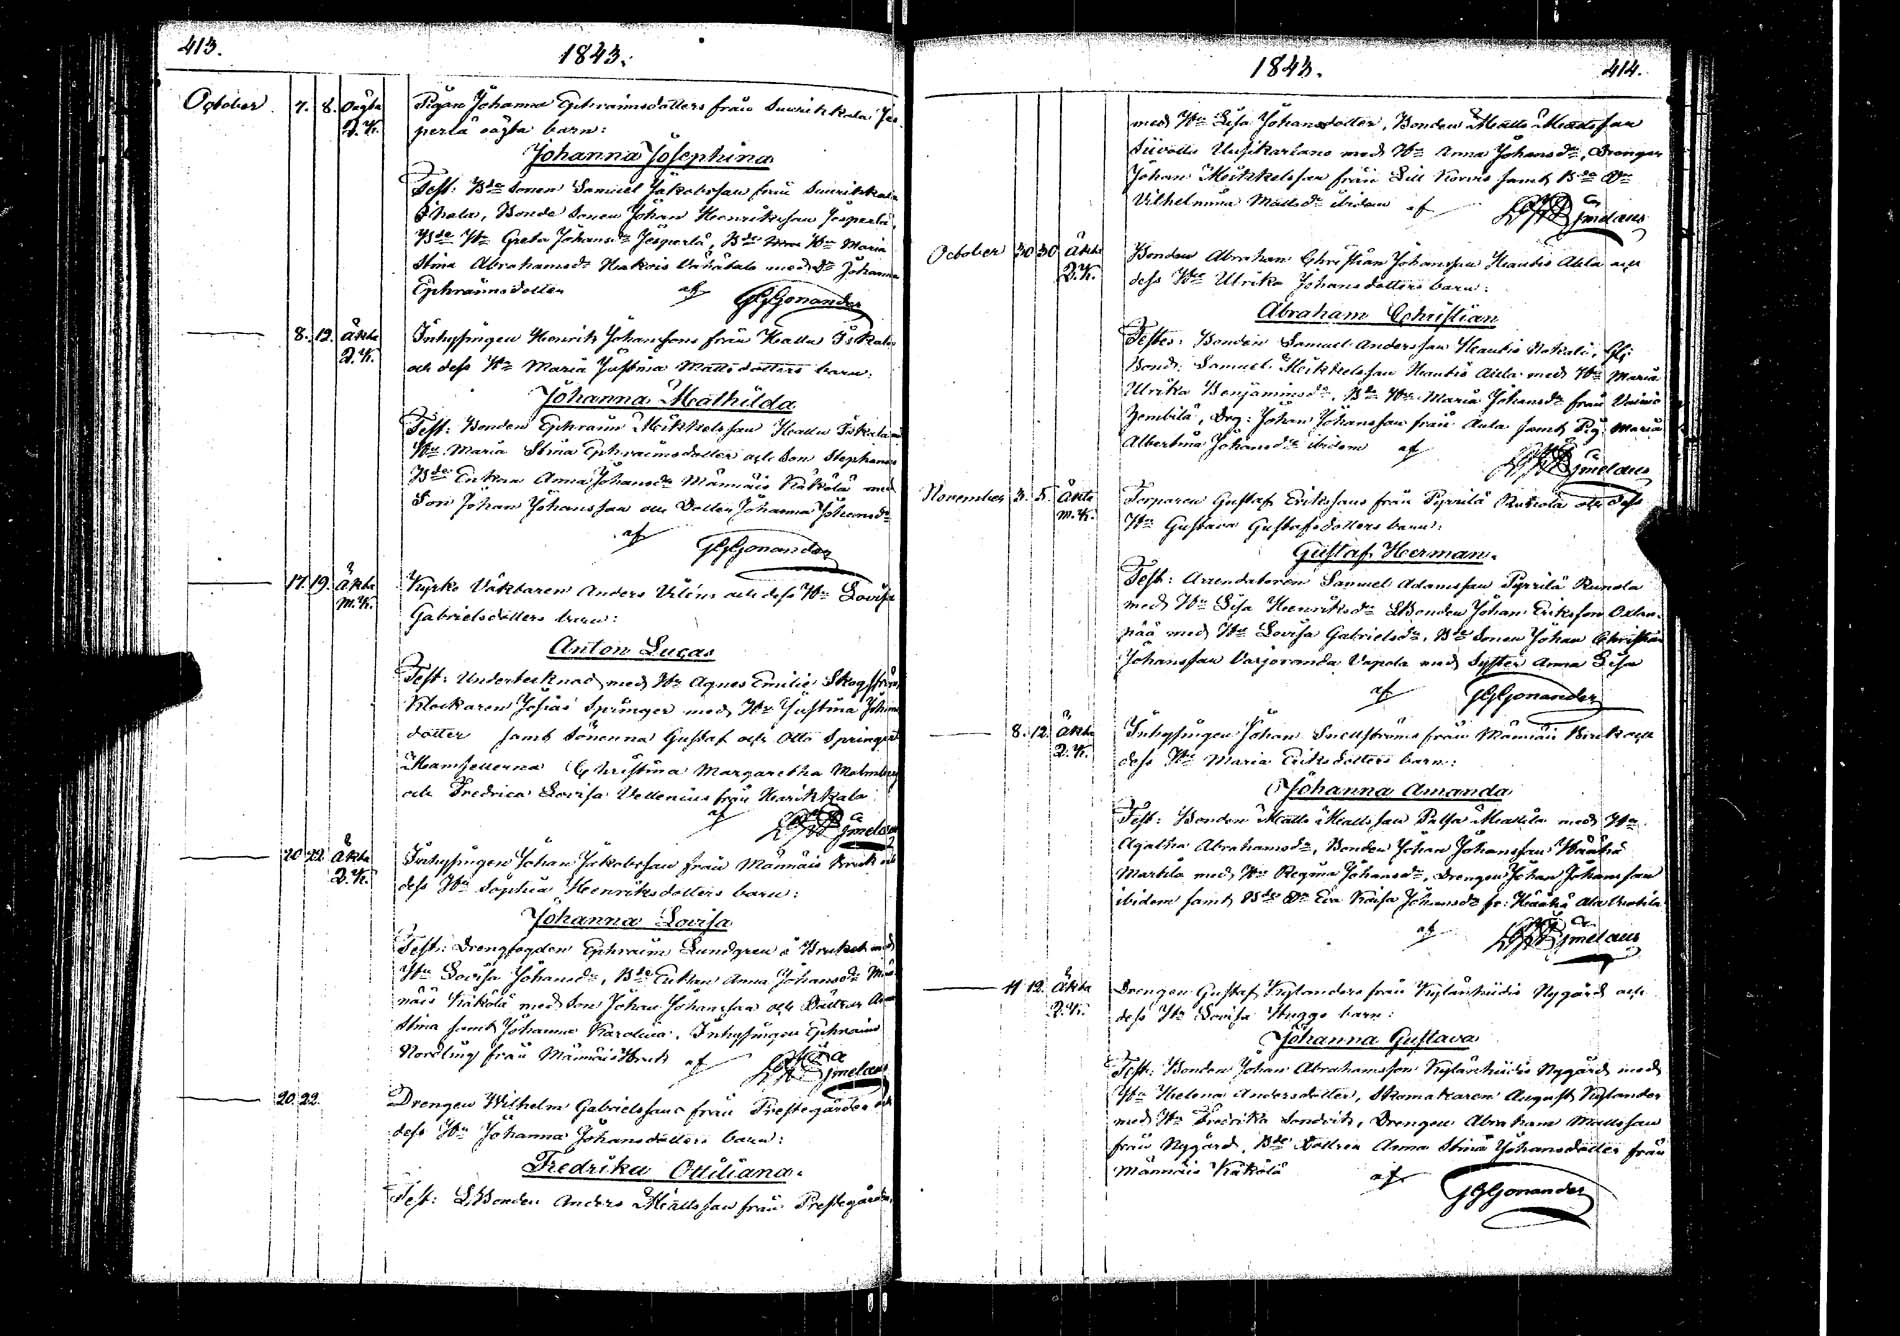 413.
1843.
October 7. 8. Oägta Pigan Johanna Ephraimsdotters från Suurikkala Jes-
D. K. perlä oägta barn:
Johanna Josephina
Test: Bde Sonen Samuel Jakobsson från Suurikkala
Bonde Sonen Johan Henriksson Jesperlä,
Bde Hu Greta Johansdr Jesperlä, Bde Hu Maria
Stina Abrahamsdr med Dr Johanna
Ephraimsdotter af GGGonander
8. 12. Äkta Inhysingen Henrik Johanssons från Hallu Iskala
D. K. och dess Hu Maria Justina Mattsdotters barn:
Johanna Mathilda
Test: Bonden Ephraim Mickelsson Hallu Iskala
Hu Maria Stina Ephraimsdotter och Son Stephanus
Bde Enkan Anna Johansdr Männäis Käkölä med
Son Johan Johansson och Dotter Johanna Johansdr
af GGGonander
17. 19. Äkta Kyrko Väktaren Anders Viléns och dess Hu Lovisa
M. K. Gabrielsdotters barn:
Anton Lucas
Test: Undertecknad med Hu Agnes Emilie
Klockaren Josias Springer med Hu Justina Johans
dotter samt Sönerna Gustaf och Otto Springer
Mamsellerna Christina Margaretha Malmberg
och Fredrica Lovisa Vellenius från Harikkala
af
20. 22. Äkta Inhysingen Johan Jakobsson från Männäis Bruk och
D. K. dess Hu Sophia Henriksdotters barn:
Johanna Lovisa
Test: Drengfogden Ephraim Lundgren å Bruket med
Hu Lovisa Johansdr, Bde Enkan Anna Johansdr Män-
näis Käkölä med Son Johan Johansson och Döttrar Anna
Stina samt Johanna Karolina. Inhysingen Ephraim
Nordling från Männäis Bruk af
20. 22. Drengen Wilhelm Gabrielssons från Prestegården och
dess Hu Johanna Johansdotters barn:
Fredrika Ottiliana.
Test: LBonden Anders Mattsson från Prestegården,
1843.
414.
med Hu Lisa Johansdotter, Bonden Matts Mattsson
med Hu Anna Johansdr, Drengen
Johan Mickelsson från Sill Korvis samt Bde Dr
Vilhelmina Mattsdr ibidem af
October 30 30 Äkta Bonden Abraham Christian Johansson Hautis Alela och
D. K. dess Hu Ulrika Johansdotters barn:
Abraham Christian
Testes: Bonden Samuel Andersson Hautis
Bond: Samuel Mickelsson Hautis med Hu Maria
Ulrika Benjaminsdr, Bde Hu Maria Johansdr från
Drg: Johan Johansson från samt Pig: Maria
Albertina Johansdr ibidem af
November 3. 5. Äkta Torparen Gustaf Erikssons från Pyrrilä och dess
M. K. Hu Gustava Gustafsdotters barn:
Gustaf Herman.
Test: Arrendatoren Samuel Adamsson Pyrrilä
med Hu Lisa Henriksdr LBonden Johan Eriksson Oxlan-
pää med Hu Lovisa Gabrielsdr, Bde Sonen Johan Christian
Johansson Varjoranda Vapala med Syster Anna Lisa
af GGGonander
8. 12. Äkta Inhysingen Johan från Männäis Bruk och
D. K. dess Hu Maria Eriksdotters barn:
Johanna Amanda
Test: Bonden Matts Mattsson Palsa Markila med Hu
Agatha Abrahamsdr, Bonden Johan Johansson Häähä
Markila med Hu Regina Johansdr, Drengen Johan Johansson
ibidem samt Bde Dr Eva Kaisa Johansdr fr: Häähä
af
11 12. Äkta Drengen Gustaf Kylanders från Kylänhiidis Nygård och
D. K. dess Hu Lovisa Stuggs barn:
Johanna Gustava
Test: Bonden Johan Abrahamsson Kylänhiidis Nygård med
Hu Helena Andersdotter, Skomakaren August Kylander
med Hu Fredrika Sondrik, Drengen Abraham Mattsson
från Nygård, Bde Dottren Anna Stina Johansdotter från
Männäis Käkölä af GGGonander